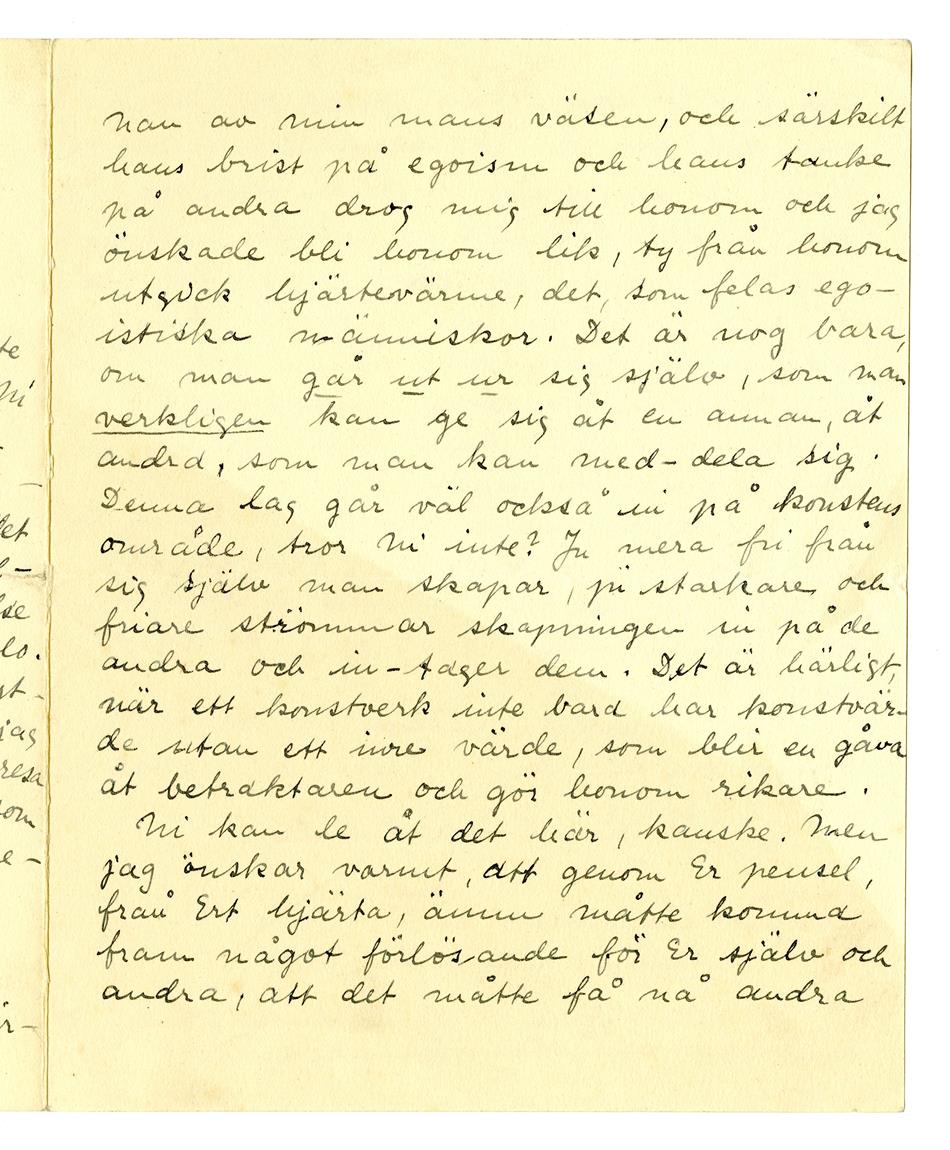 nan av min mans väsen, och särskilt
hans brist på egoism och hans tanke
på andra drog mig till honom och jag
önskade bli honom lik, ty från honom
utgick hjärtevärme, det, som felas ego-
istiska människor. Det är nog bara,
om man går ut ur sig själv, som man
verkligen kan ge sig åt en annan, åt
andra, som man kan med-dela sig.
Denna lag går väl också in på konstens
område, tror Ni inte? Ju mera fri från
sig själv man skapar, ju starkare och
friare strömmar skapningen in på de
andra och in-tager dem. Det är härligt,
när ett konstverk inte bara har konstvär-
de utan ett inre värde, som blir en gåva
åt betraktaren och gör honom rikare.
Ni kan le åt det här, kanske. Men
jag önskar varmt, att genom Er pensel,
från Ert hjärta, ännu måtte komma
fram något förlösande för Er själv och
andra, att det måtte få nå andra
te
Ni
let
l-
lse
lo.
gt-
jag
resa
som
e-
r-